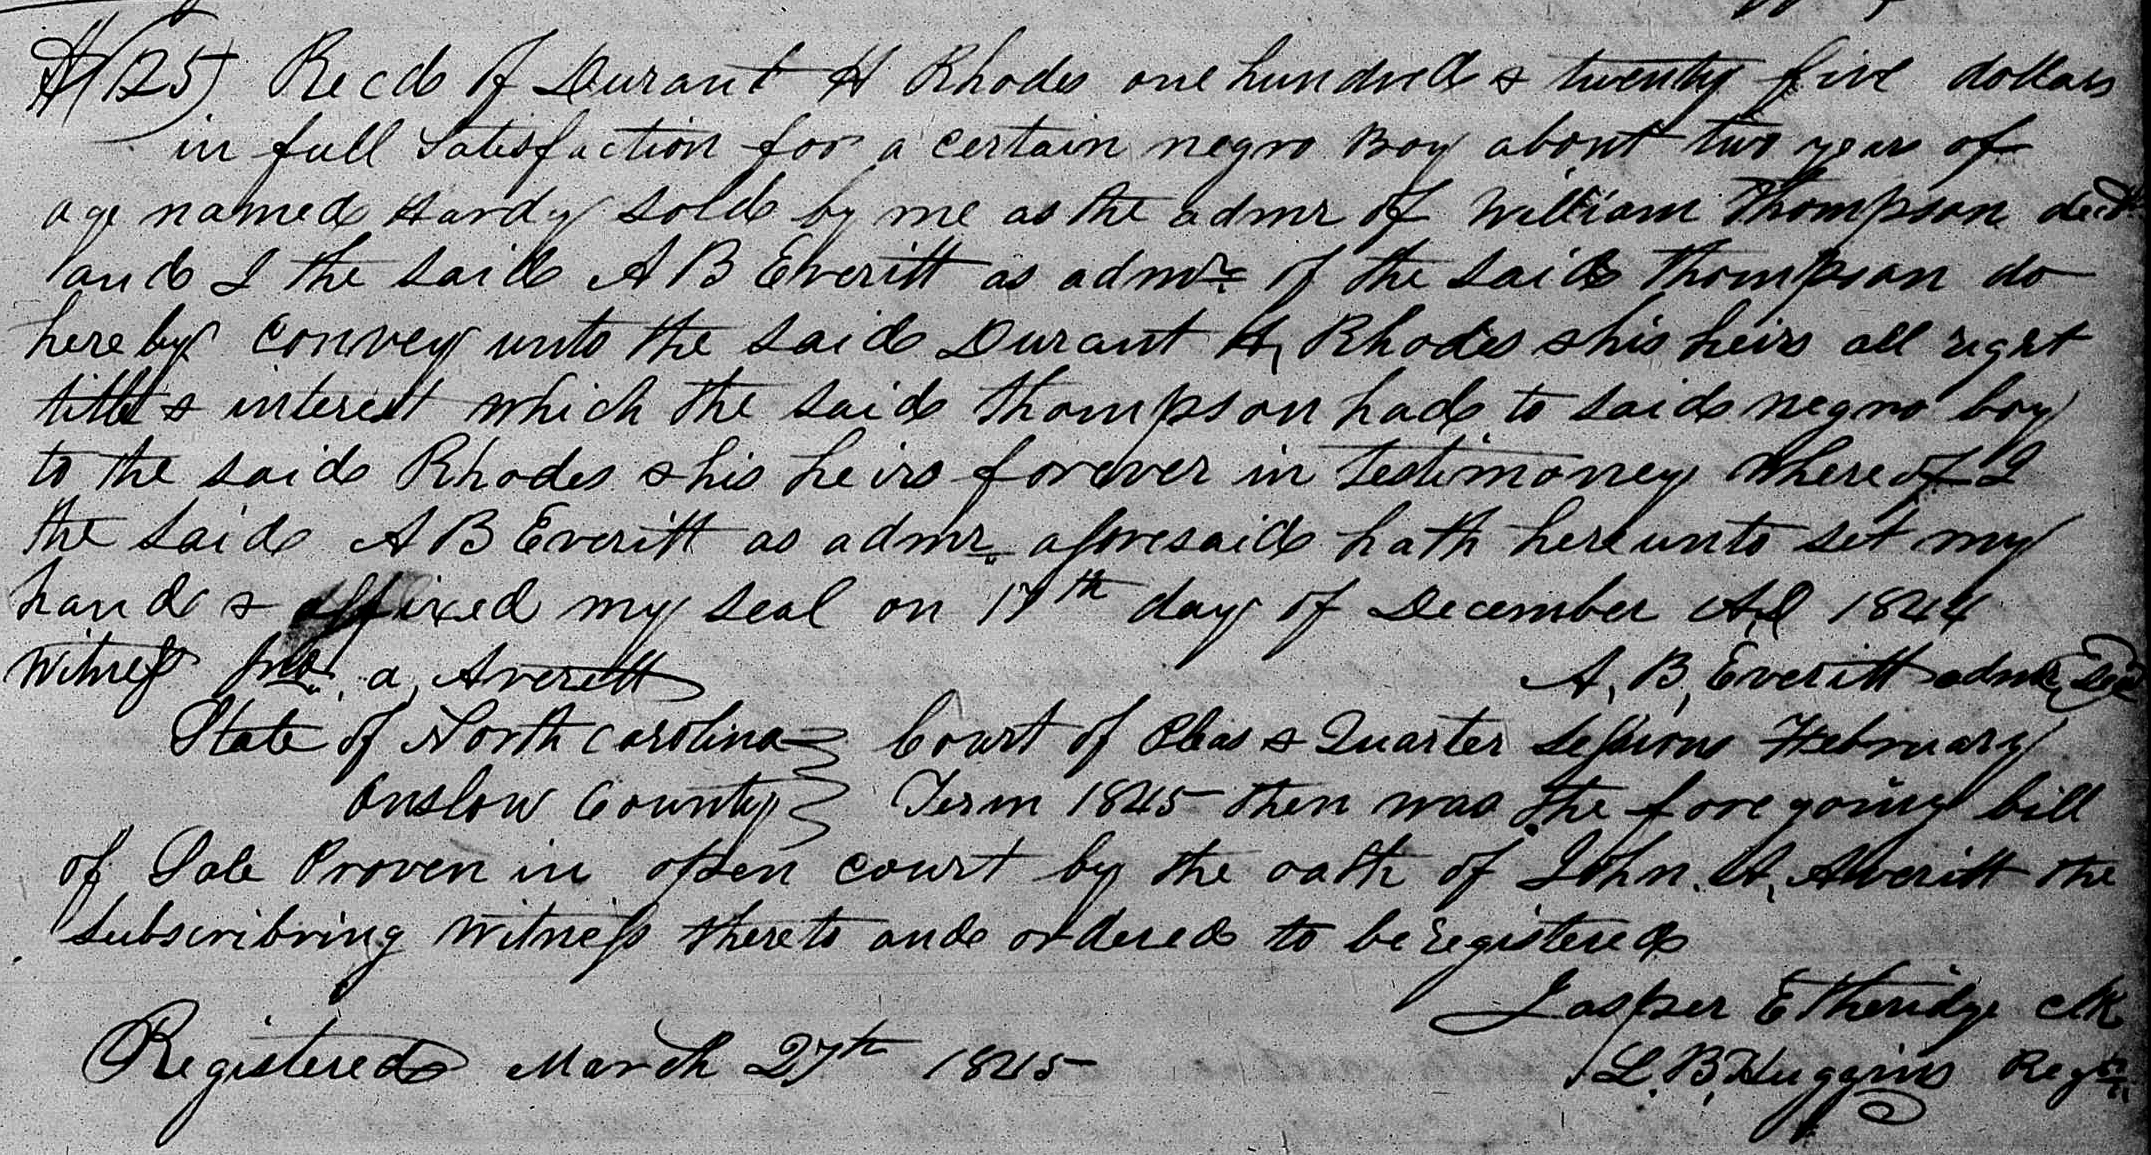 $125 Recd of Durant H Rhodes one hundred & twenty five dollars
in full Satisfaction for a certain negro Boy about two years of
age named Hardy sold by me as the admr of William Thompson decd
and I the said A B Everitt as admr. of the said Thompson do
hereby convey unto the said Durant H, Rhodes & his heirs all right
title & interest which the said Thompson had to said negro boy
to the said Rhodes & his heirs forever in testimoney whereof I
the said A B Everitt as admr. aforesaid hath hereunto set my
hand & affixed my seal on 17th day of December AD 1844
Witness Jno. a, Averett A, B, Everitt admr
State of North Carolina Court of Pleas & Quarter Sessions February
Onslow County Term 1845 then was the foregoing bill
of Sale Proven in open court by the oath of John. A, Averitt the
subscribring witness thereto and ordered to be registered
Jasper Etheridge clk
Registered March 27th 1845 L. B, Huggins Regr